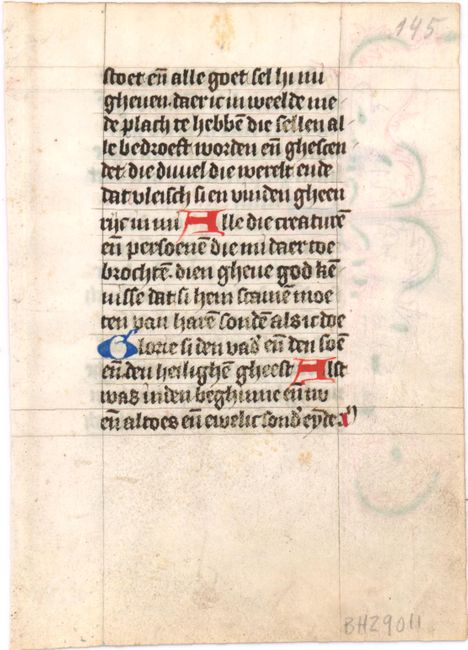 145
stoet en̄ alle goet sel hi mi
gheuen. daer ic in weelde me
de plach te hebbē die sellen al
le bedroeft worden en̄ ghescen
det. die duuel die werelt ende
dat vleisch si en vinden gheen
rijc in mi Alle die creaturē
en̄ persoenē die mi daer toe
brochtē. dien gheue god kē
nisse dat si hem scamē moe
ten van harē sondē als ic doe
Glorie si den vad' en̄ den soē
en̄ den heilighē gheest Alst
was inden beghinne en̄ nv
en̄ altoes en̄ ewelic sond' eynde.
BH29011